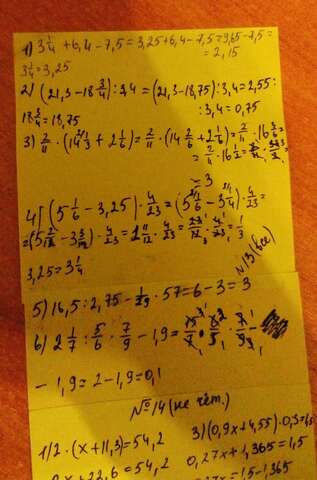 1) 3 1/4 + 6,4 - 7,5 = 3,25 + 6,4 - 7,5 = 9,65 - 7,5 =
= 2,15
3 1/4 = 3,25
2) (21,3 - 18 3/4) : 3,4 = (21,3 - 18,75) : 3,4 = 2,55 :
: 3,4 = 0,75
18 3/4 = 18,75
3) 2/11 · (14 1/3 + 2 1/6) = 2/11 · (14 2/6 + 2 1/6) = 2/11 · 16 3/6 =
= 2/11 · 16 1/2 =
= 3
4) (5 1/6 - 3,25) · 4/23 = (5 1/6 - 3 1/4) · 4/23 =
= (5 2/12 - 3 3/12) · 4/23 = 1 11/12 · 4/23 = 23/12 · 4/23 = 1/3
3,25 = 3 1/4
№13 (все)
5) 16,5 : 2,75 - 1/19 · 57 = 6 - 3 = 3
6) 2 1/7 : 5/6 · 7/9 - 1,9 = 15/7 · 6/5 · 7/9
- 1,9 = 2 - 1,9 = 0,1
№14 (не чёт.)
1) 2 · (x + 11,3) = 54,2
3) (0,9x + 4,55) · 0,3 =
2x + 22,6 = 54,2
0,27x + 1,365 = 1,5
= 1,5 - 1,365